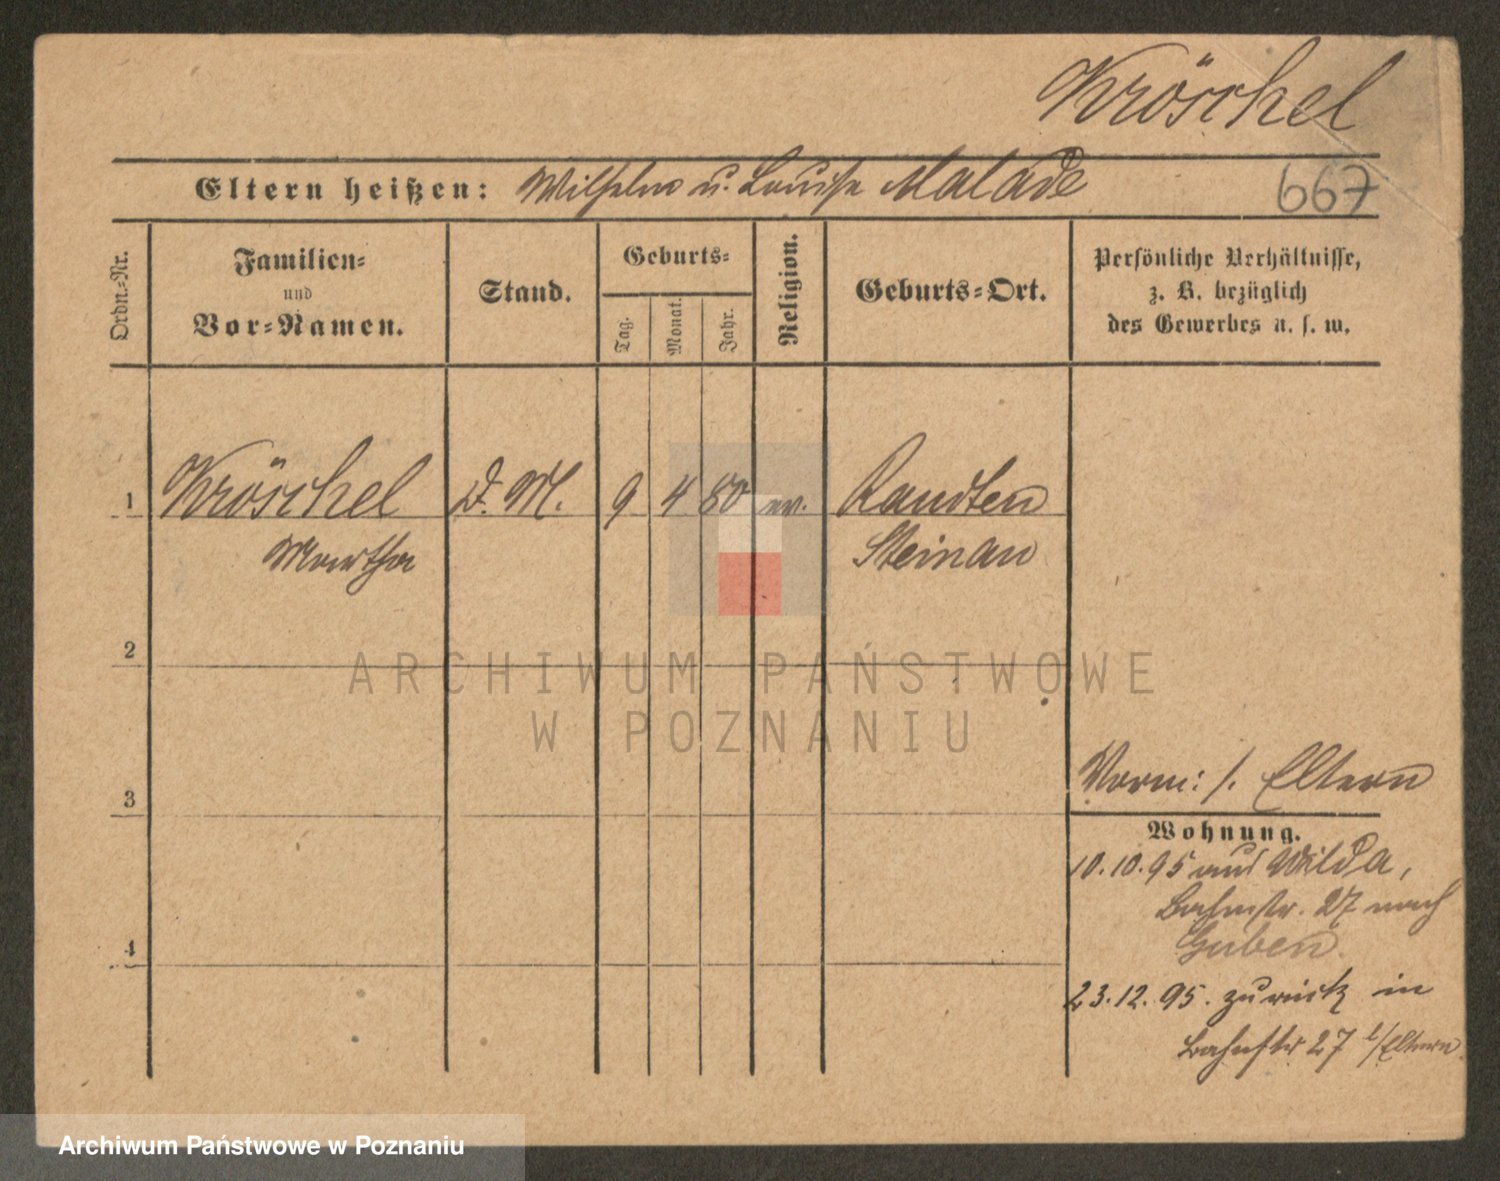 Kröschel
Eltern heißen: Wilhelm u. Louise Malade
667
Ordn.-Nr.
Familien-
und
Vor-Namen.
Stand.
Geburts-
Tag.
Monat.
Jahr.
Religion.
Geburts-Ort.
Persönliche Verhältnisse,
z. B. bezüglich
des Gewerbes u. s. w.
1 Kröschel D. M. 9 4 80 ev. Raudten
Martha Steinau
2
ARCHIWUM PAŃSTWOWE
W POZNANIU
3
Vorm: s. Eltern
Wohnung.
10.10.95 aus Wilda,
Bahnstr. 27 nach
Guben.
4
23.12.95. zurück in
Bahnstr 27 b/Eltern
Archiwum Państwowe w Poznaniu